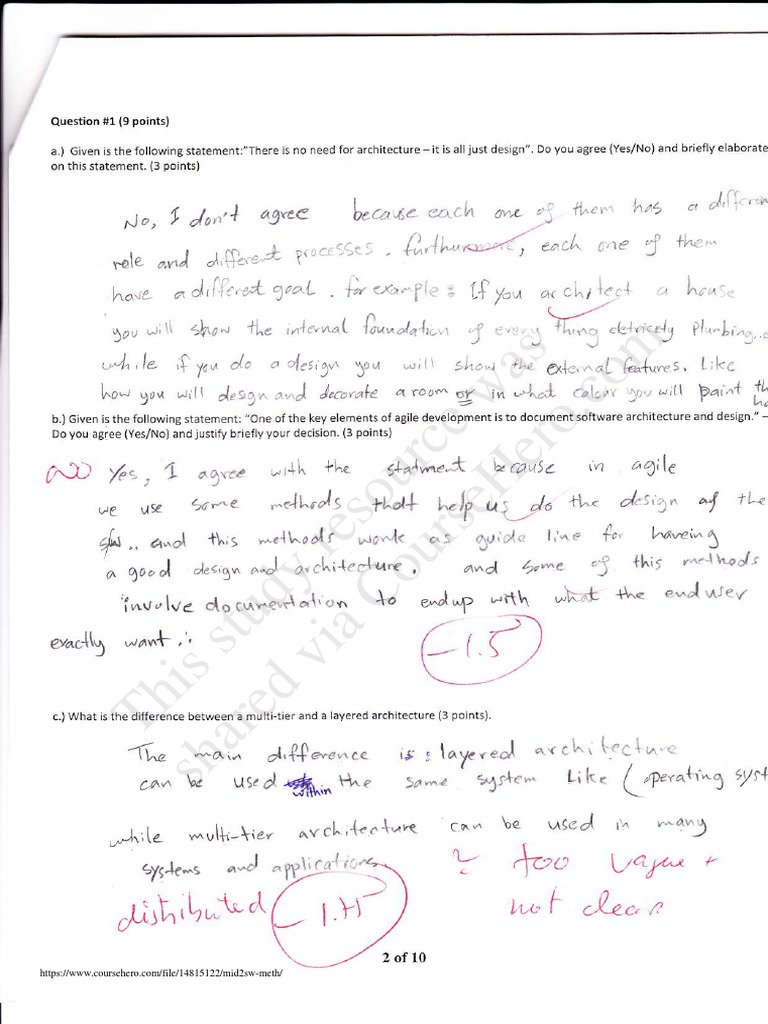 Question #1 (9 points)
a.) Given is the following statement:"There is no need for architecture – it is all just design". Do you agree (Yes/No) and briefly elaborate
on this statement. (3 points)
No, I don't agree because each one of them has a differen
role and different processes. furthurmore, each one of them
have a different goal. for example: If you architect a house
you will show the internal foundation of every thing eletricety plumbing...
while if you do a design you will show the external features. Like
how you will design and decorate a room or in what colour you will paint th
b.) Given is the following statement: "One of the key elements of agile development is to document software architecture and design." –
Do you agree (Yes/No) and justify briefly your decision. (3 points)
NO Yes, I agree with the statment because in agile
we use some methods that help us do the design of the
and this methods work as guide line for haveing
a good design and architecture. and some of this methods
involve documentation to endup with what the end user
exactly want.
-1.5
c.) What is the difference between a multi-tier and a layered architecture (3 points).
The main difference is: layered architecture
can be used within the same system like (operating syst
while multi-tier architecture can be used in many
systems and applications. ? too vague +
distributed not clear
This study resource was
shared via CourseHero.com
2 of 10
https://www.coursehero.com/file/14815122/mid2sw-meth/